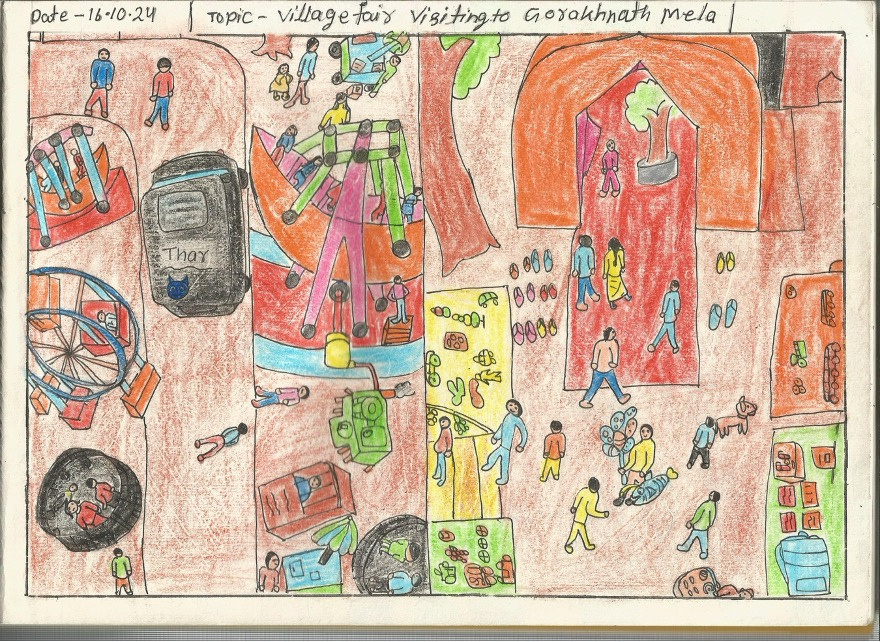 Date - 16.10.24 | Topic - Village fair Visiting to Gorakhnath Mela |
Thar